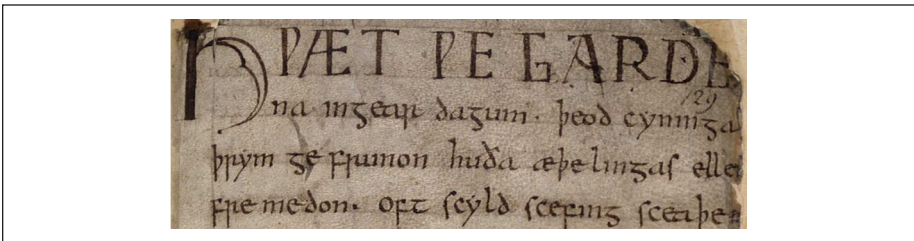 HǷÆT ǷE GARDE
na ingear dagum · þeod cyninga
þrym ge frunon huða æþelingas elle
fre medon. oft scyld scefing sceaþe
129